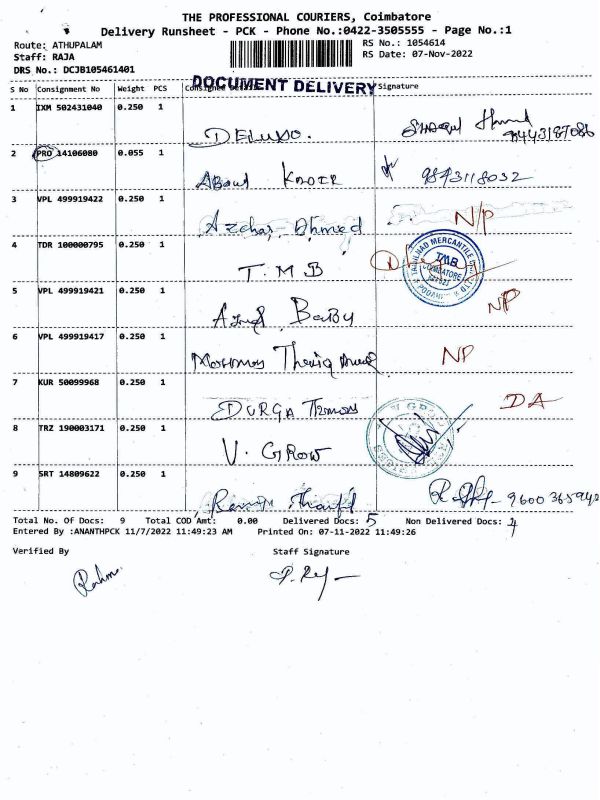 THE PROFESSIONAL COURIERS, Coimbatore
Delivery Runsheet - PCK - Phone No.:0422-3505555 - Page No.:1
Route: ATHUPALAM
RS No.: 1054614
Staff: RAJA
RS Date: 07-Nov-2022
DRS No.: DCJB105461401
DOCUMENT DELIVERY
S No Consignment No Weight PCS Signature
1 IXM 502431040 0.250 1
DELUXO. 9443187086
2 PRO 14106080 0.055 1
Abdul Kader
3 VPL 499919422 0.250 1
Azhar Ahmed N/P
4 TDR 100000795 0.250 1
T.M.B
TAMILNAD MERCANTILE
TMB
COIMBATORE
5 VPL 499919421 0.250 1
Baby NP
6 VPL 499919417 0.250 1
NP
7 KUR 50099968 0.250 1
DURGA DA
8 TRZ 190003171 0.250 1
V. GROW
9 SRT 14809622 0.250 1
Total No. Of Docs: 9 Total COD Amt: 0.00 Delivered Docs: 5 Non Delivered Docs: 4
Entered By :ANANTHPCK 11/7/2022 11:49:23 AM Printed On: 07-11-2022 11:49:26
Verified By Staff Signature